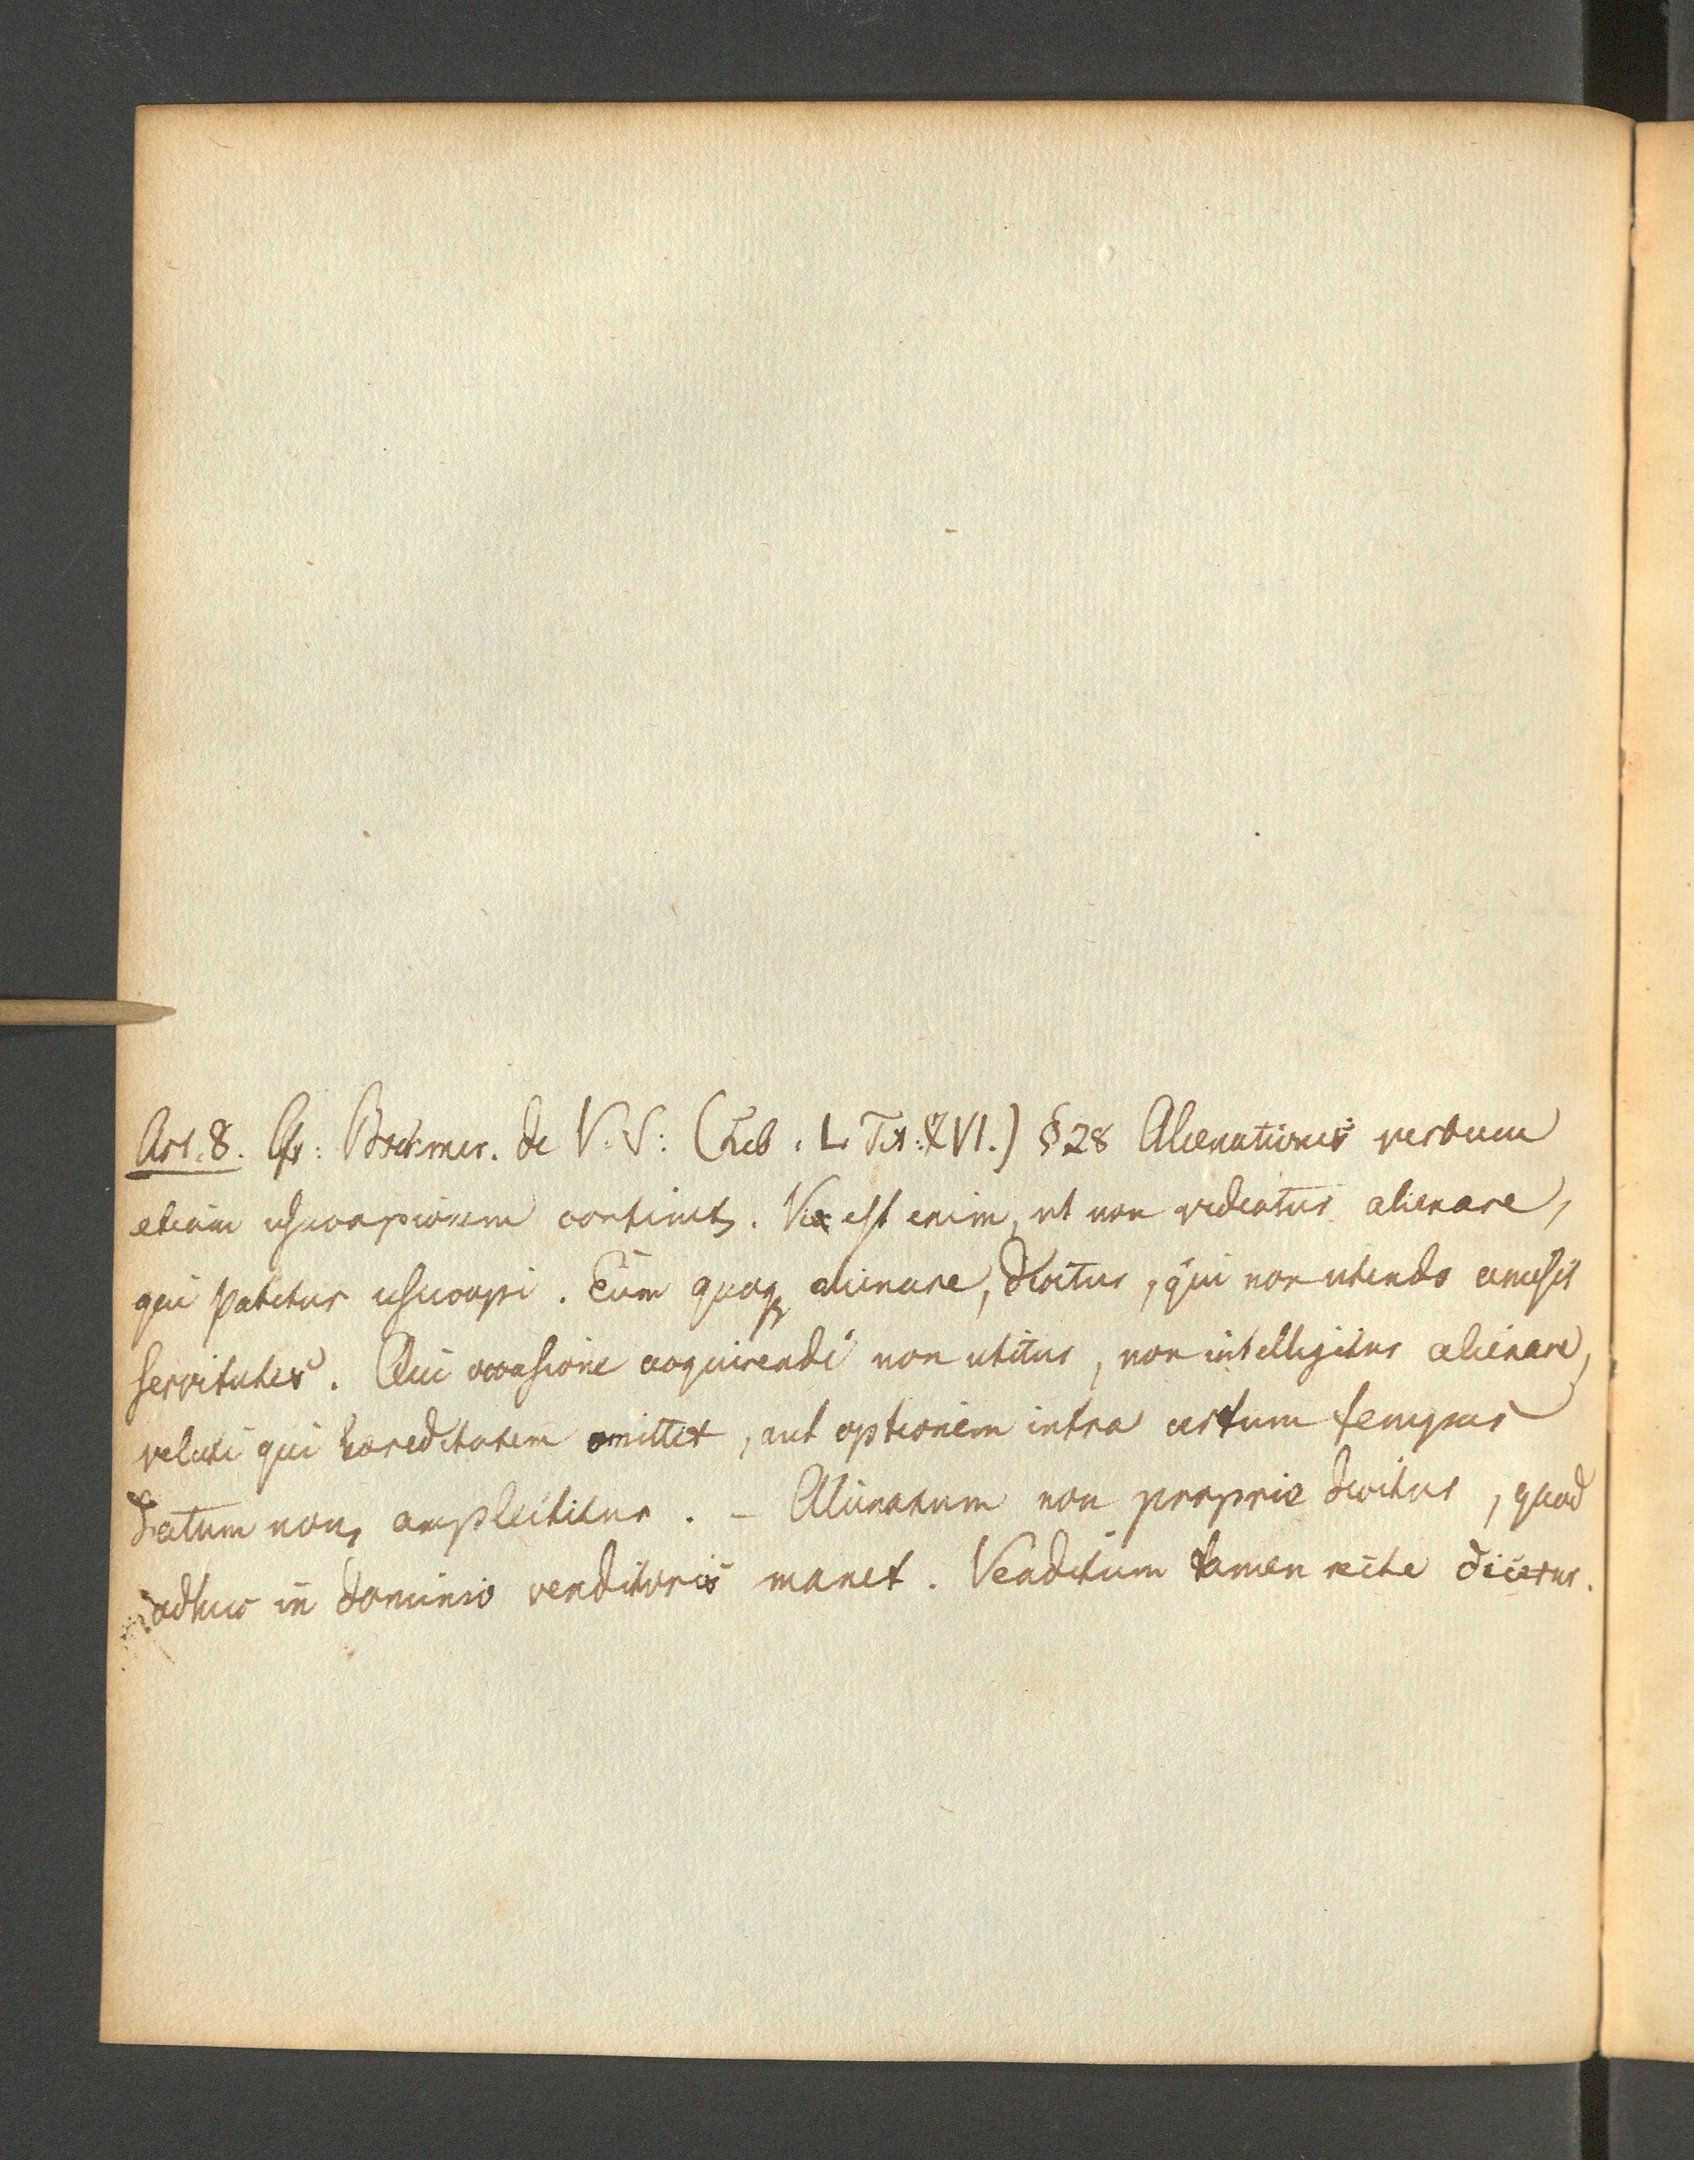 Art. 8. Cfr: Boehmer. de V. S: (Lib. L. Tit: XVI.) § 28 Alienationis verbum
etiam usucapionem continet. Vix est enim, ut non videatur alienare,
qui patitur usucapi. Eum quoq alienare, dicitur, qui non utendo amisit
servitutes. Qui occasione acquirendi non utitur, non intelligitur alienare,
veluti qui haereditatem omittit, aut optionem intra certum tempus
datum non amplectitur. – Alienatum non proprie dicitur, quod
adhuc in dominio venditoris manet. Venditum tamen recte dicetur.